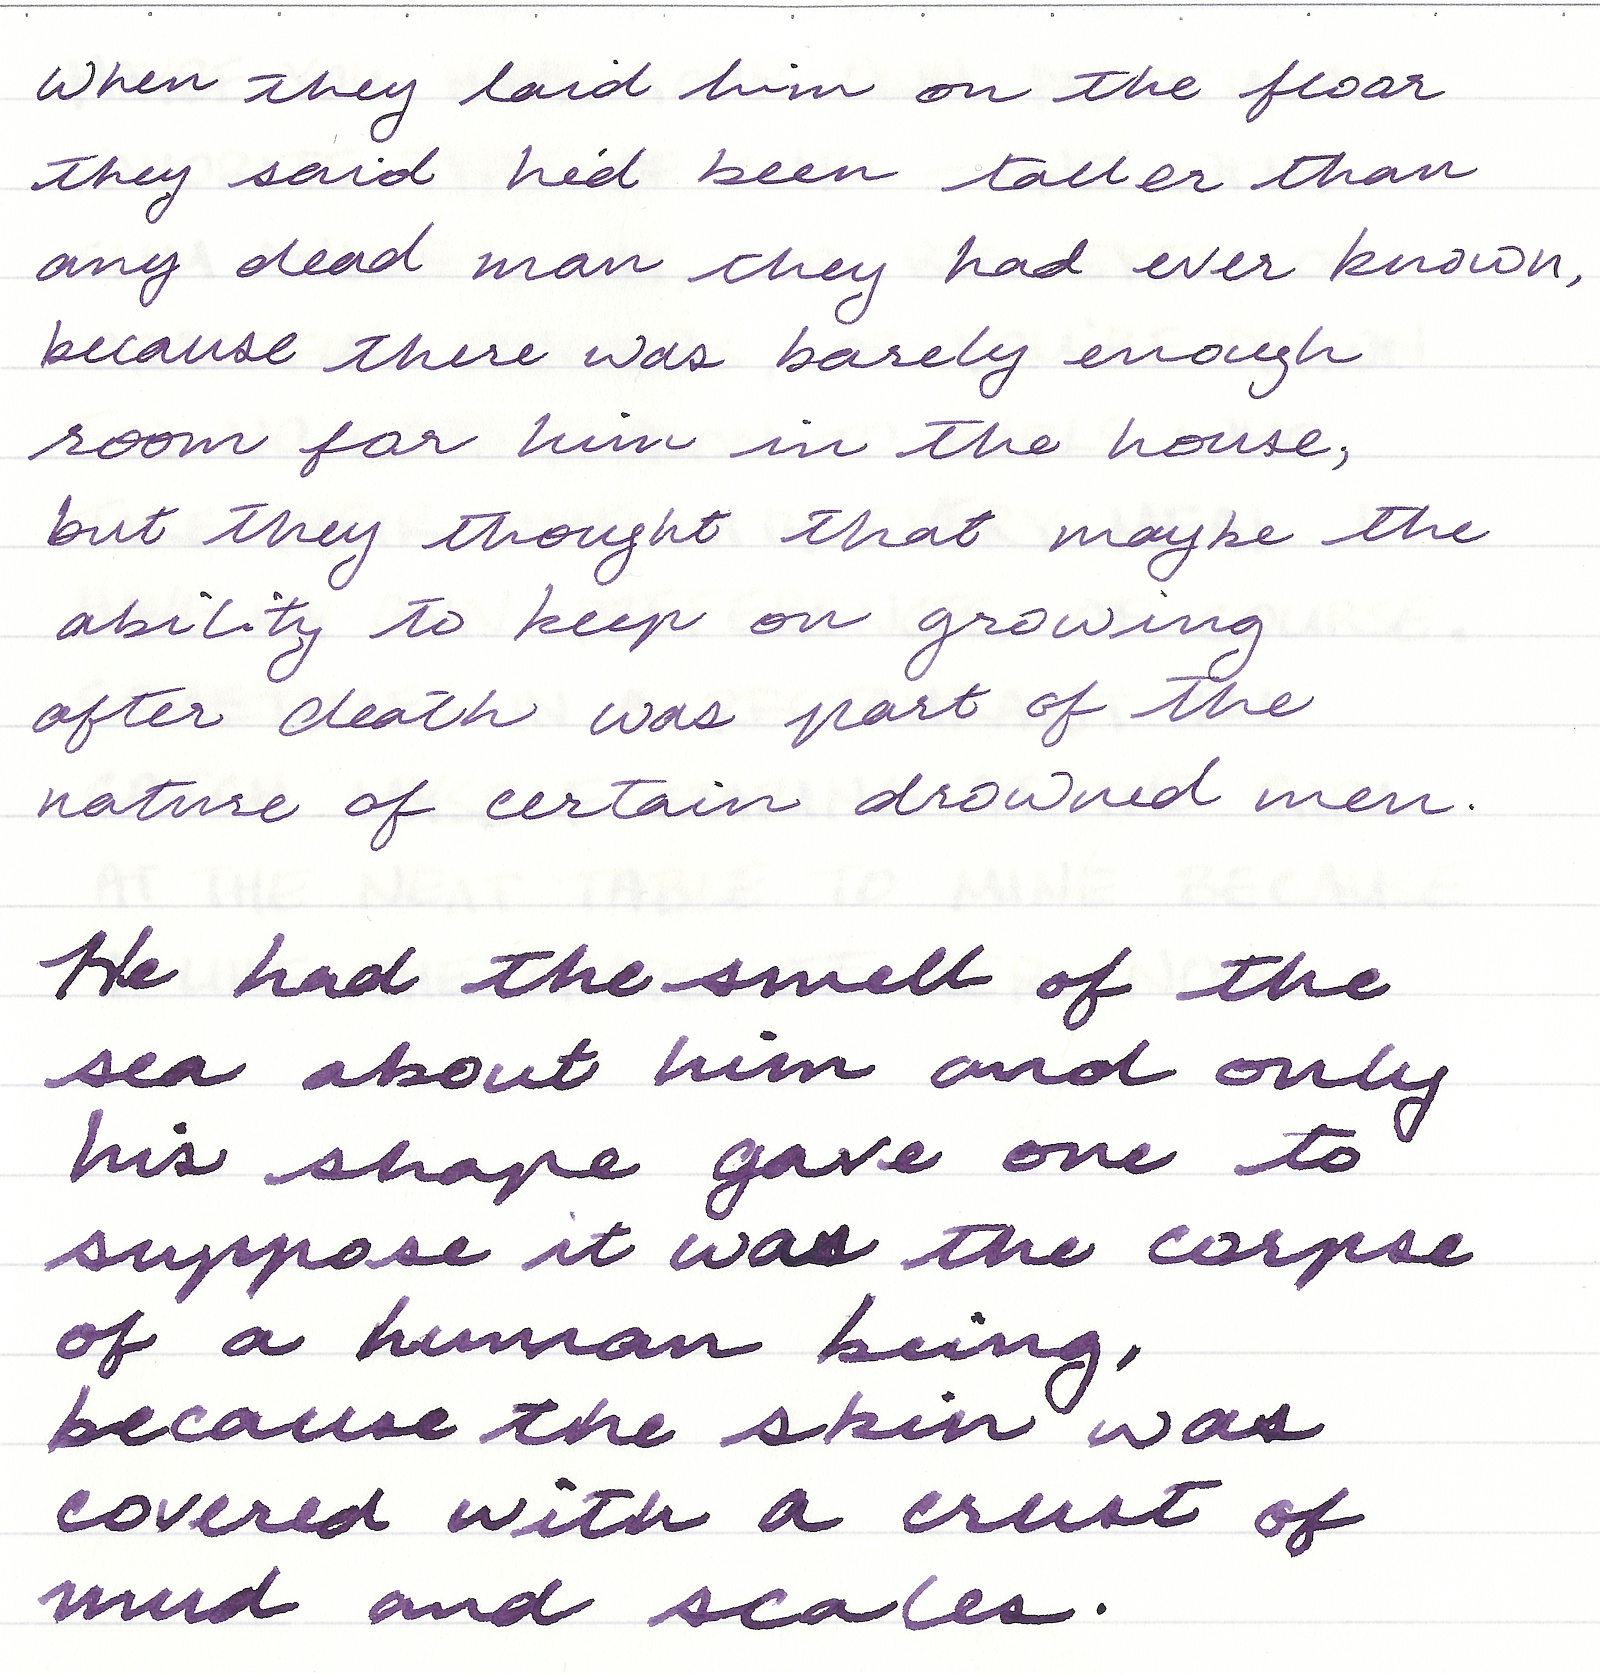 When they laid him on the floor
they said he'd been taller than
any dead man they had ever known,
because there was barely enough
room for him in the house,
but they thought that maybe the
ability to keep on growing
after death was part of the
nature of certain drowned men.
AT THE NEXT TABLE TO MINE BECAUSE
He had the smell of the
sea about him and only
his shape gave one to
suppose it was the corpse
of a human being,
because the skin was
covered with a crust of
mud and scales.